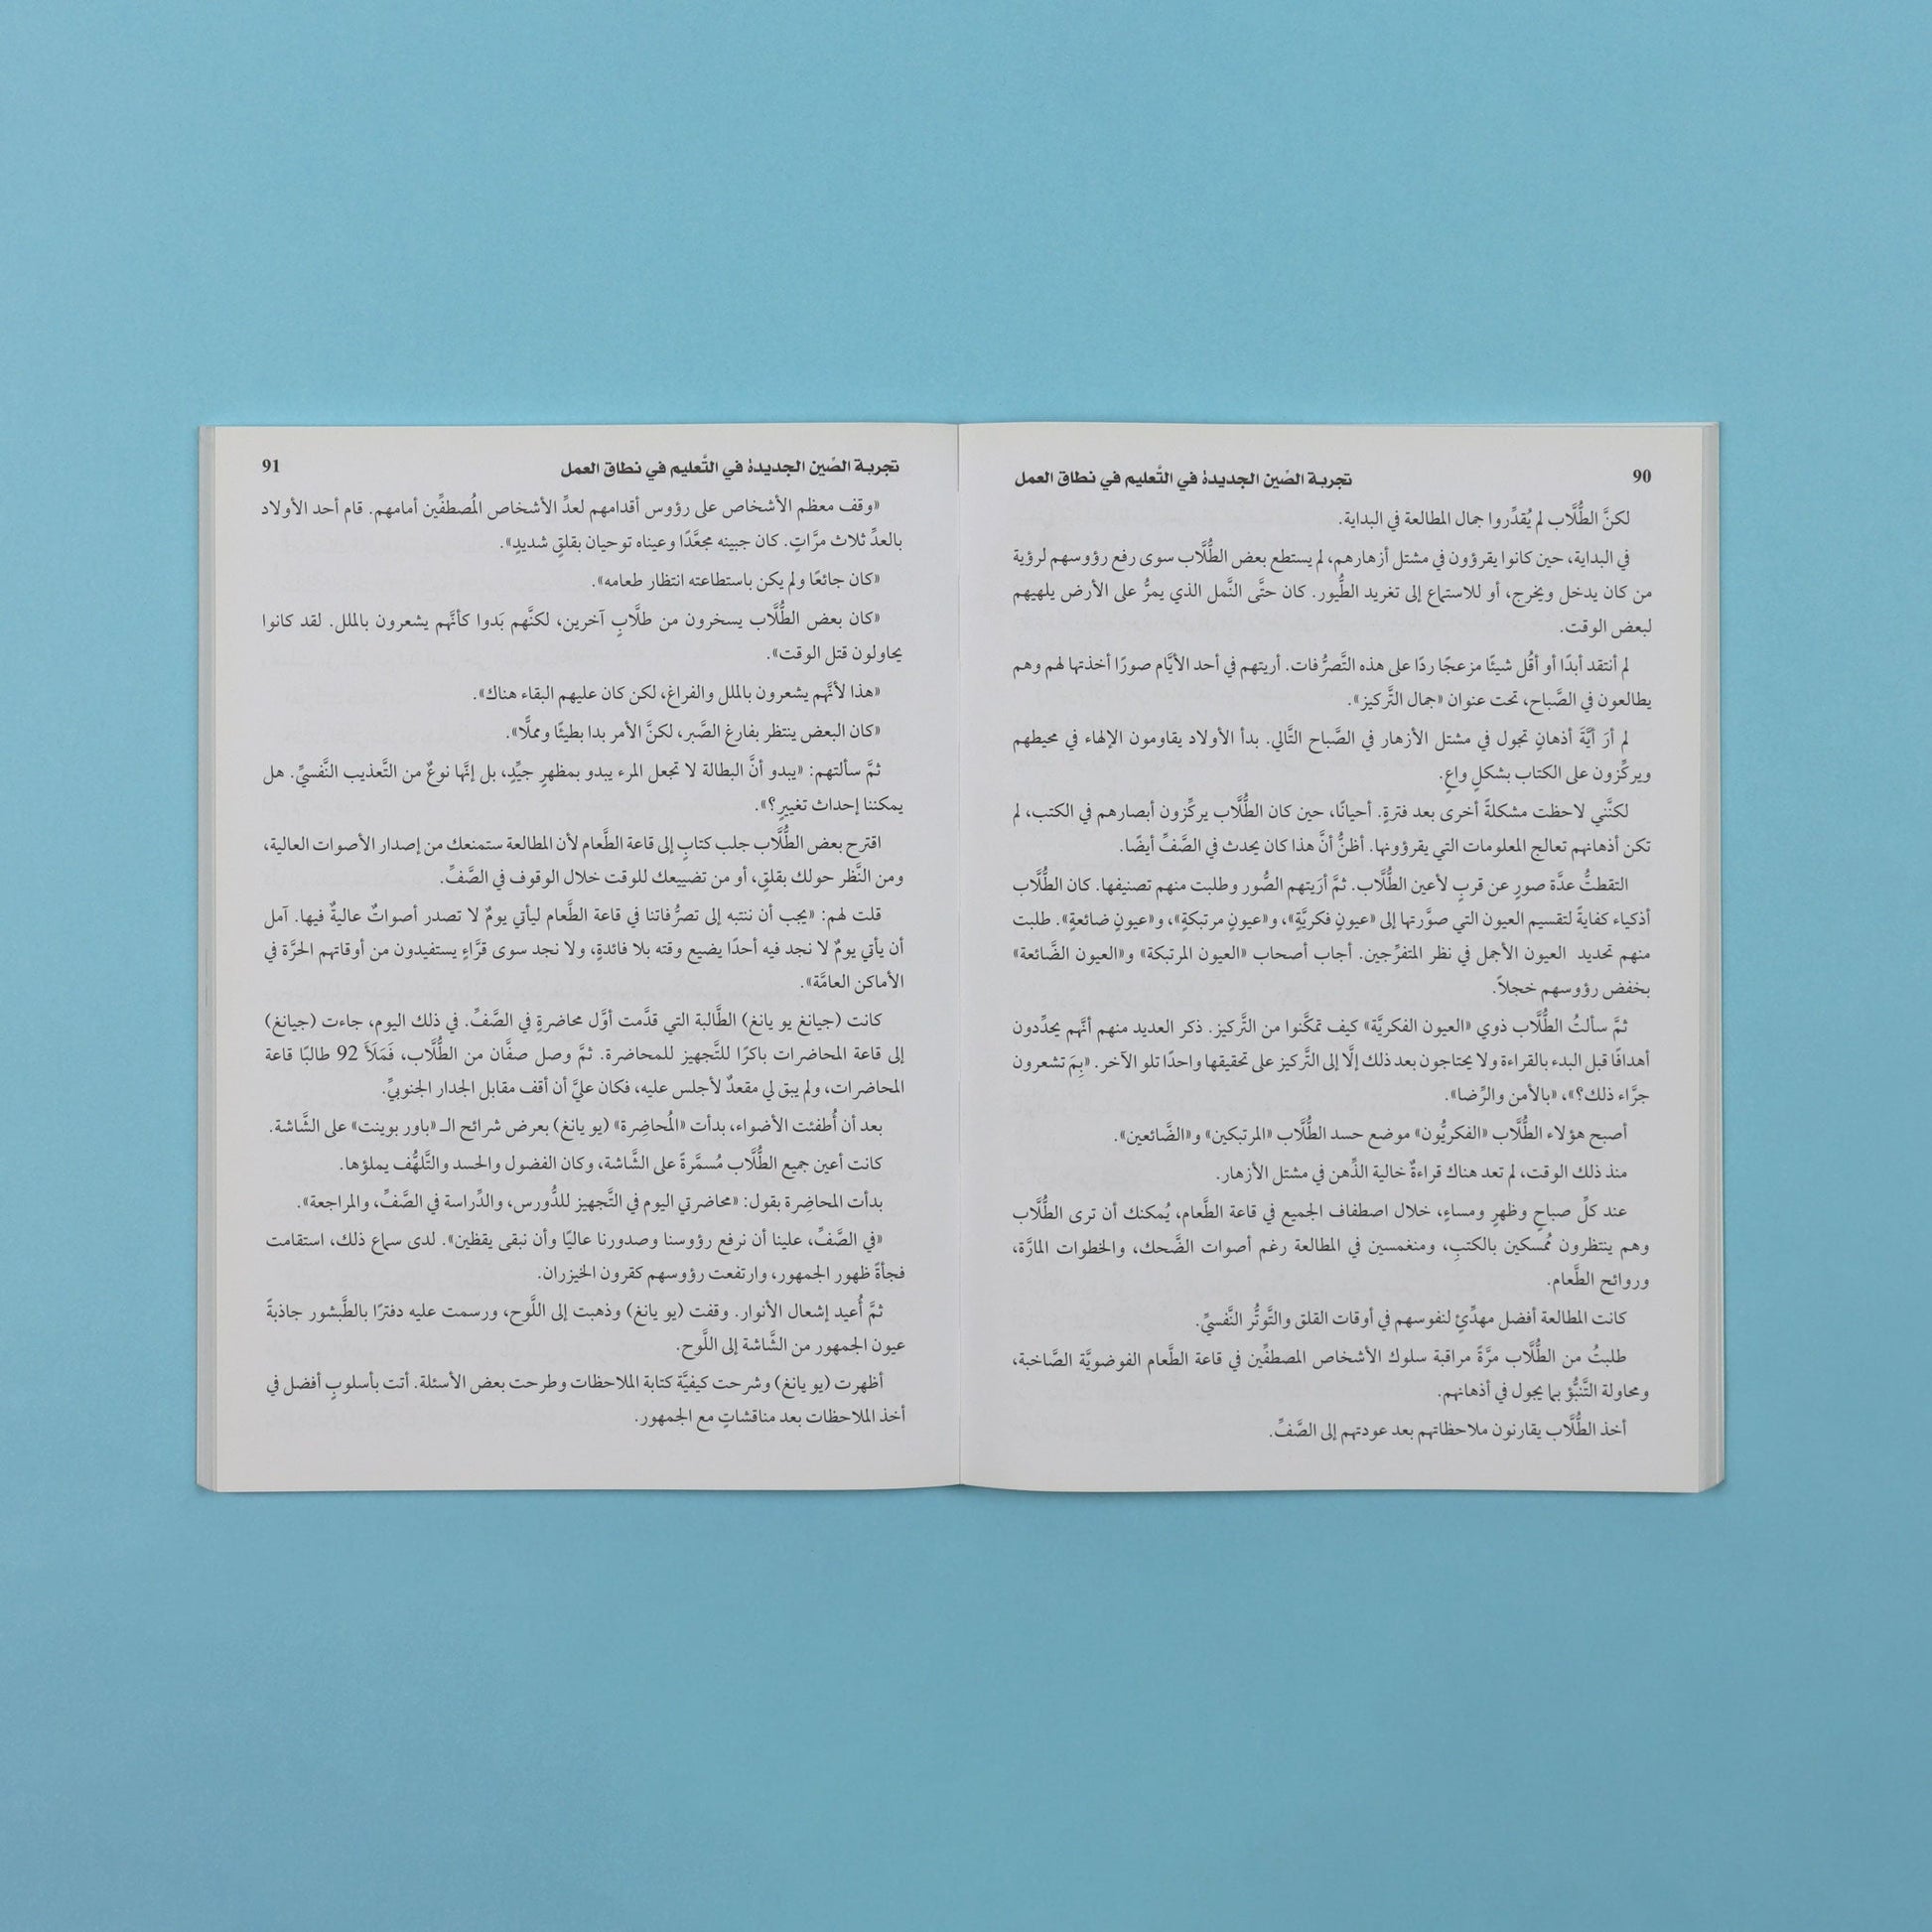 90
تجربة الصّين الجديدة في التّعليم في نطاق العمل
لكنَّ الطُّلَّاب لم يُقدِّروا جمال المطالعة في البداية.
في البداية، حين كانوا يقرؤون في مشتل أزهارهم، لم يستطع بعض الطُّلَّاب سوى رفع رؤوسهم لرؤية
من كان يدخل ويخرج، أو للاستماع إلى تغريد الطُّيور. كان حتَّى النَّمل الذي يمرُّ على الأرض يلهيهم
لبعض الوقت.
لم أنتقد أبدًا أو أقُل شيئًا مزعجًا ردًا على هذه التَّصرُّفات. أريتهم في أحد الأيَّام صورًا أخذتها لهم وهم
يطالعون في الصَّباح، تحت عنوان «جمال التَّركيز».
لم أرَ أيَّةَ أذهانٍ تجول في مشتل الأزهار في الصَّباح التَّالي. بدأ الأولاد يقاومون الإلهاء في محيطهم
ويركِّزون على الكتاب بشكلٍ واعٍ.
لكنَّني لاحظت مشكلةً أخرى بعد فترةٍ. أحيانًا، حين كان الطُّلَّاب يركِّزون أبصارهم في الكتب، لم
تكن أذهانهم تعالج المعلومات التي يقرؤونها. أظنُّ أنَّ هذا كان يحدث في الصَّفِّ أيضًا.
التقطتُّ عدَّة صورٍ عن قربٍ لأعين الطُّلَّاب. ثمَّ أرَيتهم الصُّور وطلبت منهم تصنيفها. كان الطُّلَّاب
أذكياء كفايةً لتقسيم العيون التي صوَّرتها إلى «عيونٍ فكريَّةٍ»، و«عيونٍ مرتبكةٍ»، و«عيونٍ ضائعةٍ». طلبت
منهم تحديد العيون الأجمل في نظر المتفرِّجين. أجاب أصحاب «العيون المرتبكة» و«العيون الضَّائعة»
بخفض رؤوسهم خجلاً.
ثمَّ سألتُ الطُّلَّاب ذوي «العيون الفكريَّة» كيف تمكَّنوا من التَّركيز. ذكر العديد منهم أنَّهم يحدِّدون
أهدافًا قبل البدء بالقراءة ولا يحتاجون بعد ذلك إلَّا إلى التَّركيز على تحقيقها واحدًا تلو الآخر. «بِمَ تشعرون
جرَّاء ذلك؟»، «بالأمن والرِّضا».
أصبح هؤلاء الطُّلَّاب «الفكريُّون» موضع حسد الطُّلَّاب «المرتبكين» و«الضَّائعين».
منذ ذلك الوقت، لم تعد هناك قراءةٌ خالية الذِّهن في مشتل الأزهار.
عند كلِّ صباحٍ وظهرٍ ومساءٍ، خلال اصطفاف الجميع في قاعة الطَّعام، يُمكنك أن ترى الطُّلَّاب
وهم ينتظرون مُمسكين بالكتبِ، ومنغمسين في المطالعة رغم أصوات الضَّحك، والخطوات المارَّة،
وروائح الطَّعام.
كانت المطالعة أفضل مهدِّئٍ لنفوسهم في أوقات القلق والتَّوتُّر النَّفسيِّ.
طلبتُ من الطُّلَّاب مرَّةً مراقبة سلوك الأشخاص المصطفِّين في قاعة الطَّعام الفوضويَّة الصَّاخبة،
ومحاولة التَّنبُّؤ بما يجول في أذهانهم.
أخذ الطُّلَّاب يقارنون ملاحظاتهم بعد عودتهم إلى الصَّفِّ.
تجربة الصّين الجديدة في التّعليم في نطاق العمل
91
«وقف معظم الأشخاص على رؤوس أقدامهم لعدِّ الأشخاص المُصطفِّين أمامهم. قام أحد الأولاد
بالعدِّ ثلاث مرَّاتٍ. كان جبينه مجعَّدًا وعيناه توحيان بقلقٍ شديدٍ».
«كان جائعًا ولم يكن باستطاعته انتظار طعامه».
«كان بعض الطُّلَّاب يسخرون من طلَّابٍ آخرين، لكنَّهم بَدوا كأنَّهم يشعرون بالملل. لقد كانوا
يحاولون قتل الوقت».
«هذا لأنَّهم يشعرون بالملل والفراغ، لكن كان عليهم البقاء هناك».
«كان البعض ينتظر بفارغ الصَّبر، لكنَّ الأمر بدا بطيئًا ومملًّا».
ثمَّ سألتهم: «يبدو أنَّ البطالة لا تجعل المرء يبدو بمظهرٍ جيِّدٍ، بل إنَّها نوعٌ من التَّعذيب النَّفسيِّ. هل
يمكننا إحداث تغييرٍ؟».
اقترح بعض الطُّلَّاب جلب كتابٍ إلى قاعة الطَّعام لأن المطالعة ستمنعك من إصدار الأصوات العالية،
ومن النَّظر حولك بقلقٍ، أو من تضييعك للوقت خلال الوقوف في الصَّفِّ.
قلت لهم: «يجب أن ننتبه إلى تصرُّفاتنا في قاعة الطَّعام ليأتي يومٌ لا تصدر أصواتٌ عاليةٌ فيها. آمل
أن يأتي يومٌ لا نجد فيه أحدًا يضيع وقته بلا فائدةٍ، ولا نجد سوى قرَّاءٍ يستفيدون من أوقاتهم الحرَّة في
الأماكن العامَّة».
كانت (جيانغ يو يانغ) الطَّالبة التي قدَّمت أوَّل محاضرةٍ في الصَّفِّ. في ذلك اليوم، جاءت (جيانغ)
إلى قاعة المحاضرات باكرًا للتَّجهيز للمحاضرة. ثمَّ وصل صفَّان من الطُّلَّاب، فَمَلَأَ 92 طالبًا قاعة
المحاضرات، ولم يبق لي مقعدٌ لأجلس عليه، فكان عليَّ أن أقف مقابل الجدار الجنوبيِّ.
بعد أن أُطفئت الأضواء، بدأت «المُحاضِرة» (يو يانغ) بعرض شرائح الـ «باور بوينت» على الشَّاشة.
كانت أعين جميع الطُّلَّاب مُسمَّرةً على الشَّاشة، وكان الفضول والحسد والتَّلهُّف يملؤها.
بدأت المحاضِرة بقول: «محاضرتي اليوم في التَّجهيز للدُّورس، والدِّراسة في الصَّفِّ، والمراجعة».
«في الصَّفِّ، علينا أن نرفع رؤوسنا وصدورنا عاليًا وأن نبقى يقظين». لدى سماع ذلك، استقامت
فجأةً ظهور الجمهور، وارتفعت رؤوسهم كقرون الخيزران.
ثمَّ أُعيد إشعال الأنوار. وقفت (يو يانغ) وذهبت إلى اللَّوح، ورسمت عليه دفترًا بالطَّبشور جاذبةً
عيون الجمهور من الشَّاشة إلى اللَّوح.
أظهرت (يو يانغ) وشرحت كيفيَّة كتابة الملاحظات وطرحت بعض الأسئلة. أتت بأسلوبٍ أفضل في
أخذ الملاحظات بعد مناقشاتٍ مع الجمهور.